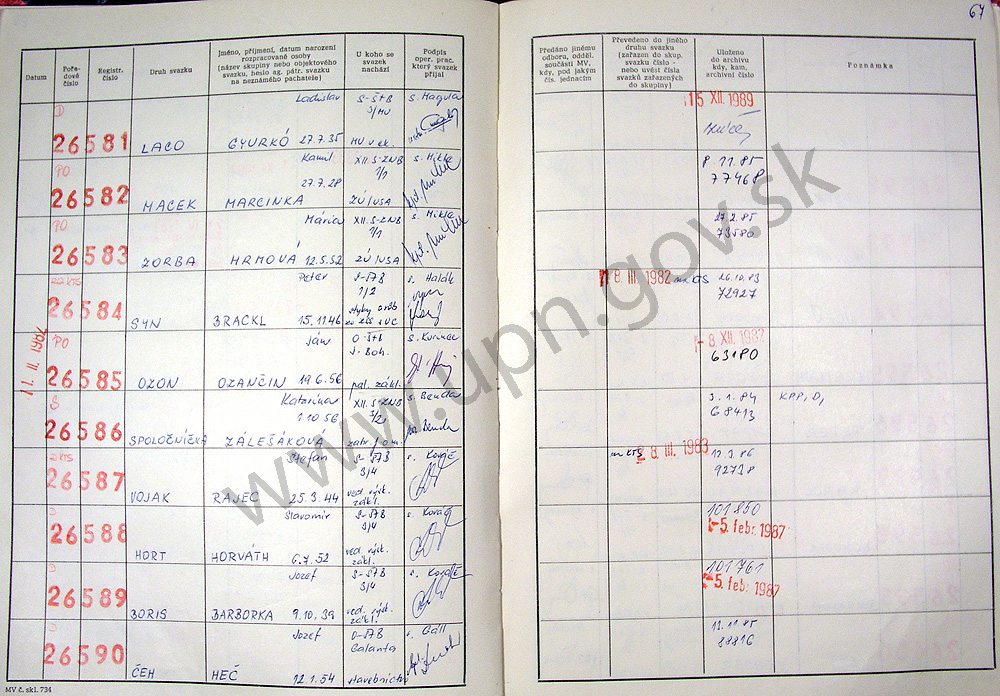 67
Datum
Pořadové číslo
Registr. číslo
Druh svazku
Jméno, příjmení, datum narození rozpracované osoby (název skupiny nebo objektového svazku, heslo ag. pátr. svazku na neznámého pachatele)
U koho se svazek nachází
Podpis oper. prac. který svazek přijal
Předáno jinému odboru, odděl. součásti MV, kdy, pod jakým čís. jednacím
Převedeno do jiného druhu svazku (zařazen do skup. svazku číslo - nebo uvést čísla svazků zařazených do skupiny)
Uloženo do archivu kdy, kam, archivní číslo
Poznámka
11. II. 1982
D 26581 LACO Ladislav GYURKÓ 27.7.35 S-ŠTB 3/MU s. Magula 15 XII. 1989
PO 26582 MACEK Kamil MARCINKA 27.7.28 XII. S-ZNB 1/1 ZÚ/USA s. Mikle 8.11.85 77468
PO 26583 ZORBA Mária HRMOVÁ 12.5.52 XII. S-ZNB 1/1 ZÚ/USA s. Mikle 27.2.85 73580
26584 SYN Peter BRACKL 15.11.46 S-ŠTB 1/2 s. Haldík 8. III. 1982 26.10.83 72927
PO 26585 OZON Ján OZANČIN 19.6.56 O-ŠTB J. Boh. pal. zákl. 8. XII. 1982 63180
26586 SPOLOČNÍČKA Katarína ZÁLEŠÁKOVÁ 1.10.56 XII. S-ZNB s. Benda 3.1.84 68413 KPP, D,
26587 VOJAK Štefan RAJEC 25.3.44 S-ŠTB 3/4 ved. výsk. zákl. s. Kováč na KTS 8. III. 1983 12.3.86 92738
D 26588 HORT Slavomír HORVÁTH 6.7.52 S-ŠTB 3/4 ved. výsk. zákl. s. Kováč 101850 -5. febr. 1987
D 26589 BORIS Jozef BARBORKA 9.10.39 S-ŠTB 3/4 ved. výsk. zákl. s. Kováč 101761 -5. febr. 1987
D 26590 ČEH Jozef HEČ 12.1.54 O-ŠTB Galanta stavebníctvo s. Gáll 11.11.85 88816
MV č. skl. 734
www.upn.gov.sk